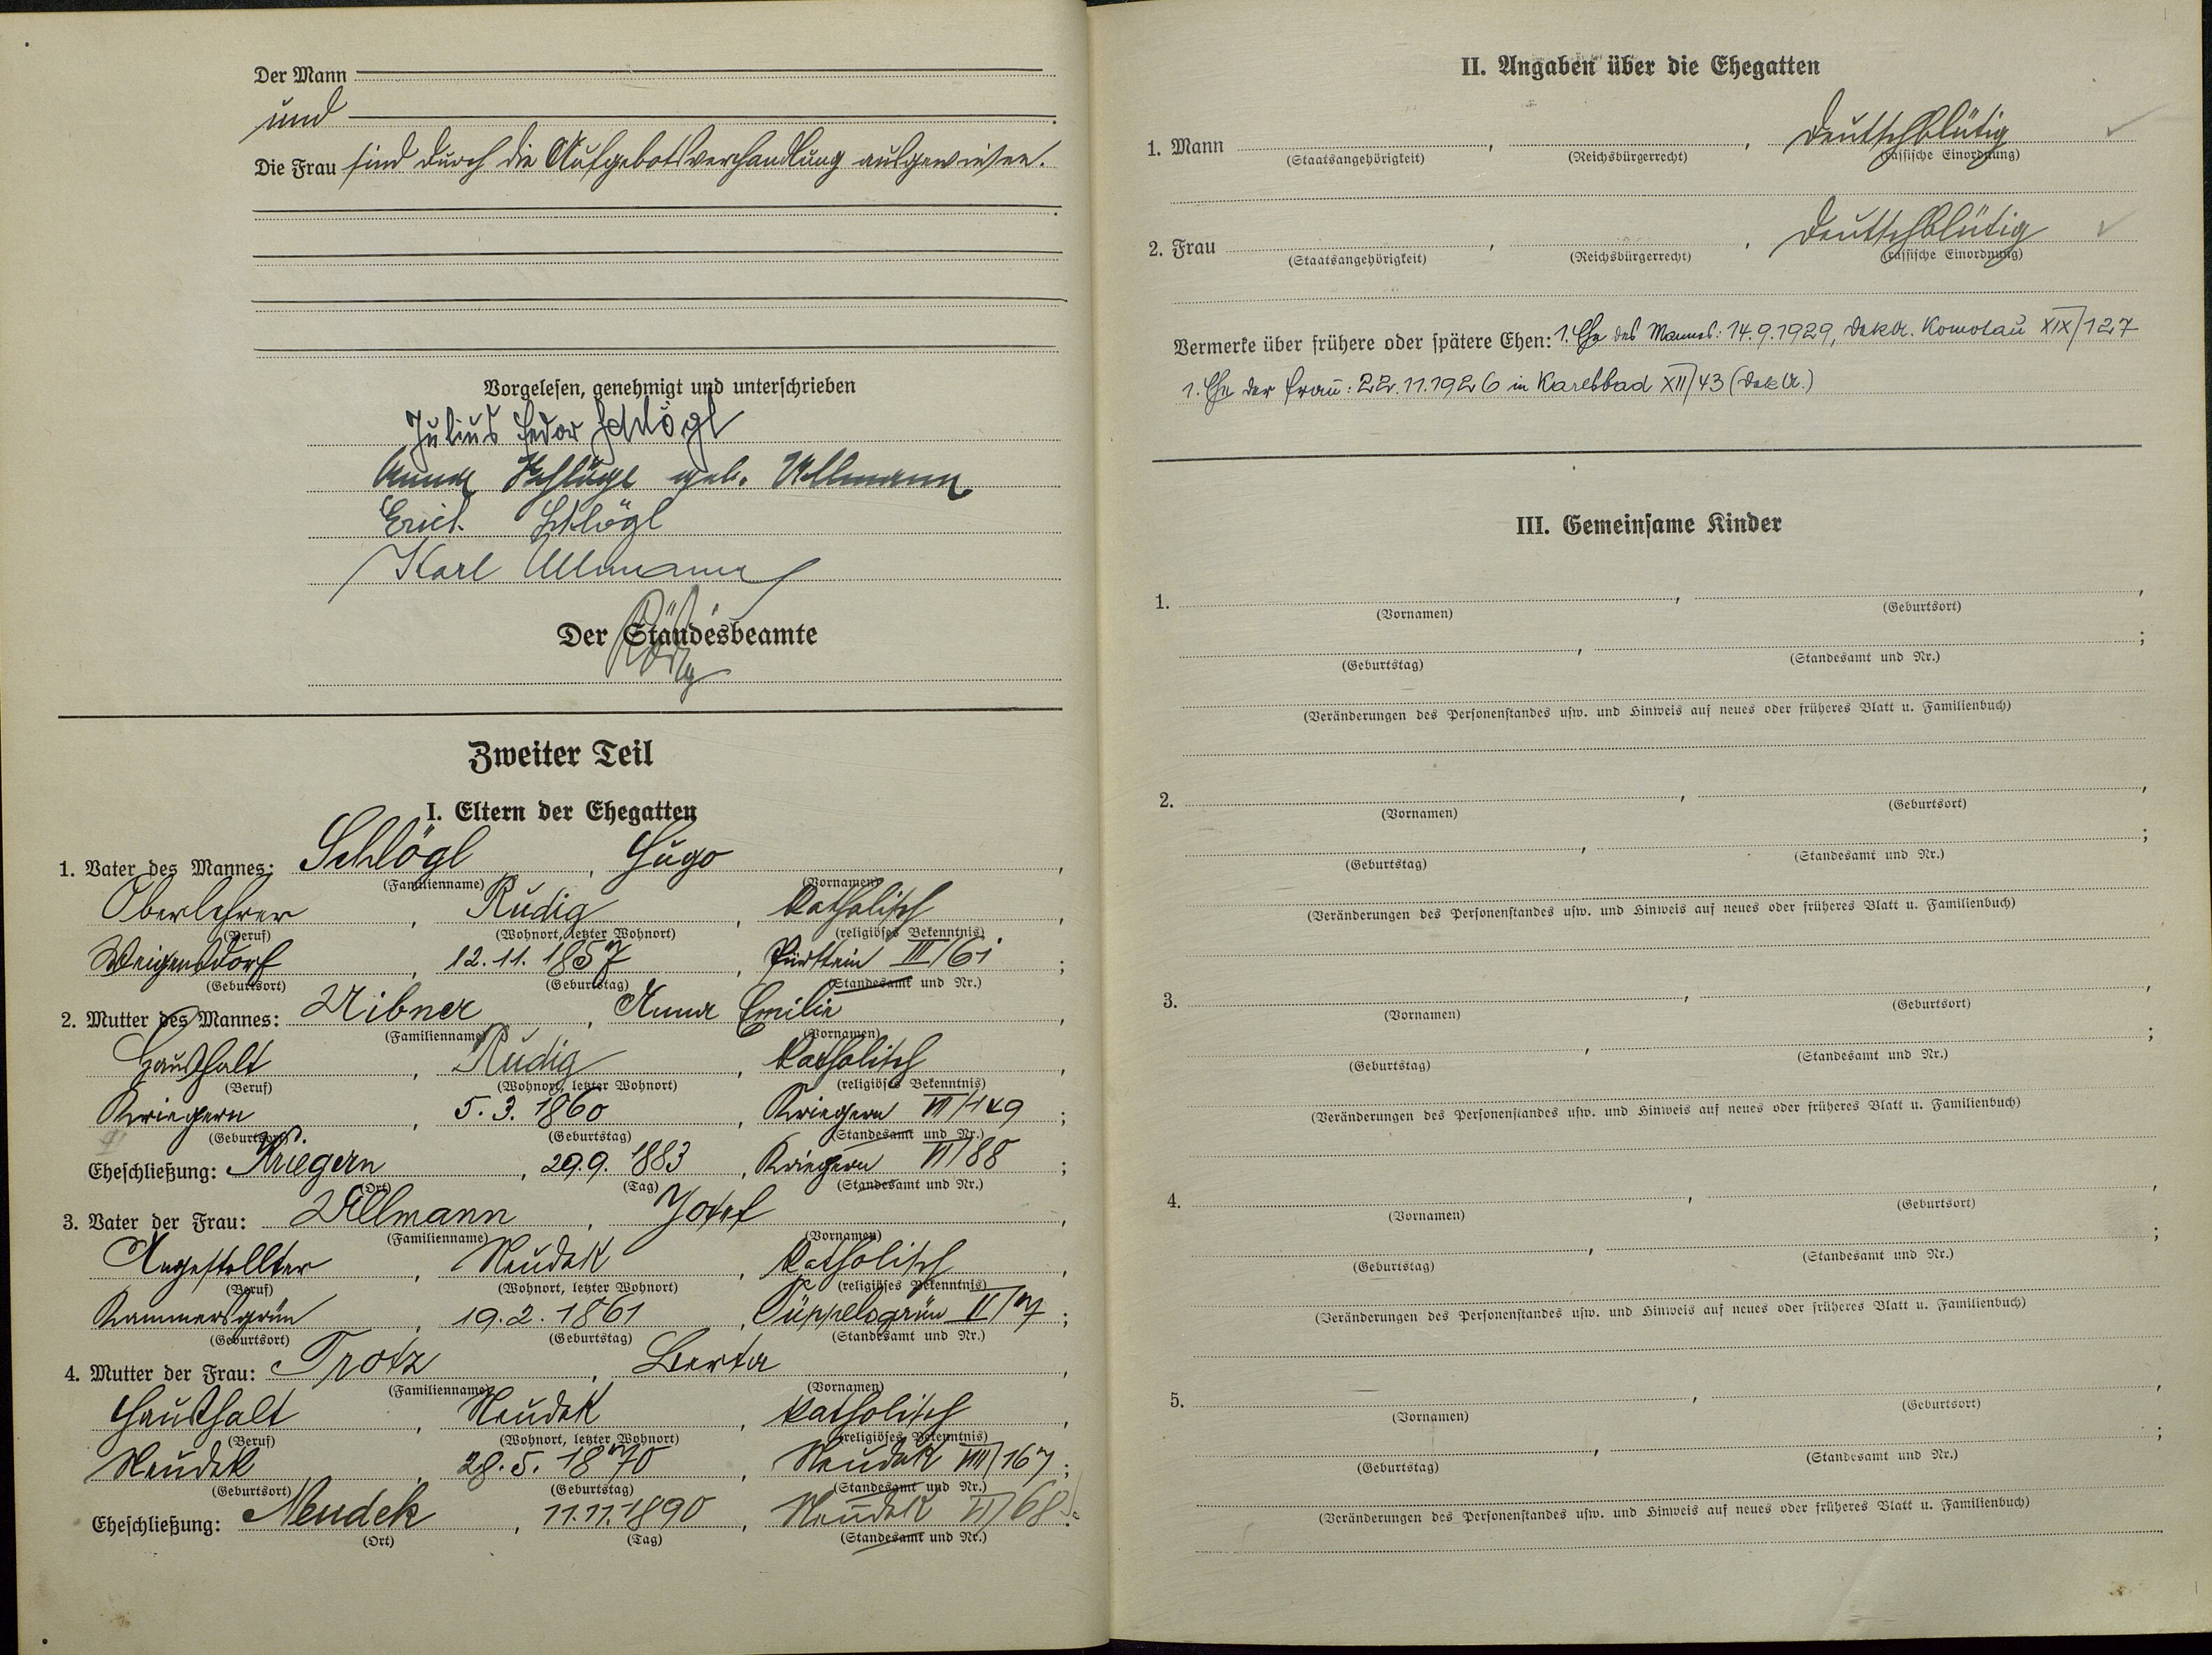 Der Mann
und
Die Frau sind durch die Aufgebotsverhandlung ausgewiesen.
Vorgelesen, genehmigt und unterschrieben
Julius Fedor Schlögl
Anna Schlögl geb. Ullmann
Erich Schlögl
Karl Ullmann
Der Standesbeamte
Zweiter Teil
I. Eltern der Ehegatten
1. Vater des Mannes: Schlögl, Hugo,
(Familienname) (Vornamen)
Oberlehrer, Rudig, katholisch,
(Beruf) (Wohnort, letzter Wohnort) (religiöses Bekenntnis)
Weigensdorf, 12.11.1857, Pürstein III/61;
(Geburtsort) (Geburtstag) (Standesamt und Nr.)
2. Mutter des Mannes: Uibner, Anna Emilie,
(Familienname) (Vornamen)
Haushalt, Rudig, katholisch,
(Beruf) (Wohnort, letzter Wohnort) (religiöses Bekenntnis)
Kriegern, 5.3.1860, Kriegern VII/149;
(Geburtsort) (Geburtstag) (Standesamt und Nr.)
Eheschließung: Kriegern, 29.9.1883, Kriegern VI/88;
(Ort) (Tag) (Standesamt und Nr.)
3. Vater der Frau: Ullmann, Josef,
(Familienname) (Vornamen)
Angestellter, Neudek, katholisch,
(Beruf) (Wohnort, letzter Wohnort) (religiöses Bekenntnis)
Kammersgrün, 19.2.1861, Tüppelsgrün V/7;
(Geburtsort) (Geburtstag) (Standesamt und Nr.)
4. Mutter der Frau: Trotz, Berta,
(Familienname) (Vornamen)
Haushalt, Neudek, katholisch,
(Beruf) (Wohnort, letzter Wohnort) (religiöses Bekenntnis)
Neudek, 28.5.1870, Neudek VIII/167;
(Geburtsort) (Geburtstag) (Standesamt und Nr.)
Eheschließung: Neudek, 11.11.1890, Neudek VI/68.
(Ort) (Tag) (Standesamt und Nr.)
II. Angaben über die Ehegatten
1. Mann , , deutschblütig
(Staatsangehörigkeit) (Reichsbürgerrecht) (rassische Einordnung)
2. Frau , , deutschblütig
(Staatsangehörigkeit) (Reichsbürgerrecht) (rassische Einordnung)
Vermerke über frühere oder spätere Ehen: 1. Ehe des Mannes: 14.9.1929, Komotau XIX/127
1. Ehe der Frau: 22.11.1926 in Karlsbad XII/43
III. Gemeinsame Kinder
1. , ,
(Vornamen) (Geburtsort)
, ;
(Geburtstag) (Standesamt und Nr.)
(Veränderungen des Personenstandes usw. und Hinweis auf neues oder früheres Blatt u. Familienbuch)
2. , ,
(Vornamen) (Geburtsort)
, ;
(Geburtstag) (Standesamt und Nr.)
(Veränderungen des Personenstandes usw. und Hinweis auf neues oder früheres Blatt u. Familienbuch)
3. , ,
(Vornamen) (Geburtsort)
, ;
(Geburtstag) (Standesamt und Nr.)
(Veränderungen des Personenstandes usw. und Hinweis auf neues oder früheres Blatt u. Familienbuch)
4. , ,
(Vornamen) (Geburtsort)
, ;
(Geburtstag) (Standesamt und Nr.)
(Veränderungen des Personenstandes usw. und Hinweis auf neues oder früheres Blatt u. Familienbuch)
5. , ,
(Vornamen) (Geburtsort)
, ;
(Geburtstag) (Standesamt und Nr.)
(Veränderungen des Personenstandes usw. und Hinweis auf neues oder früheres Blatt u. Familienbuch)